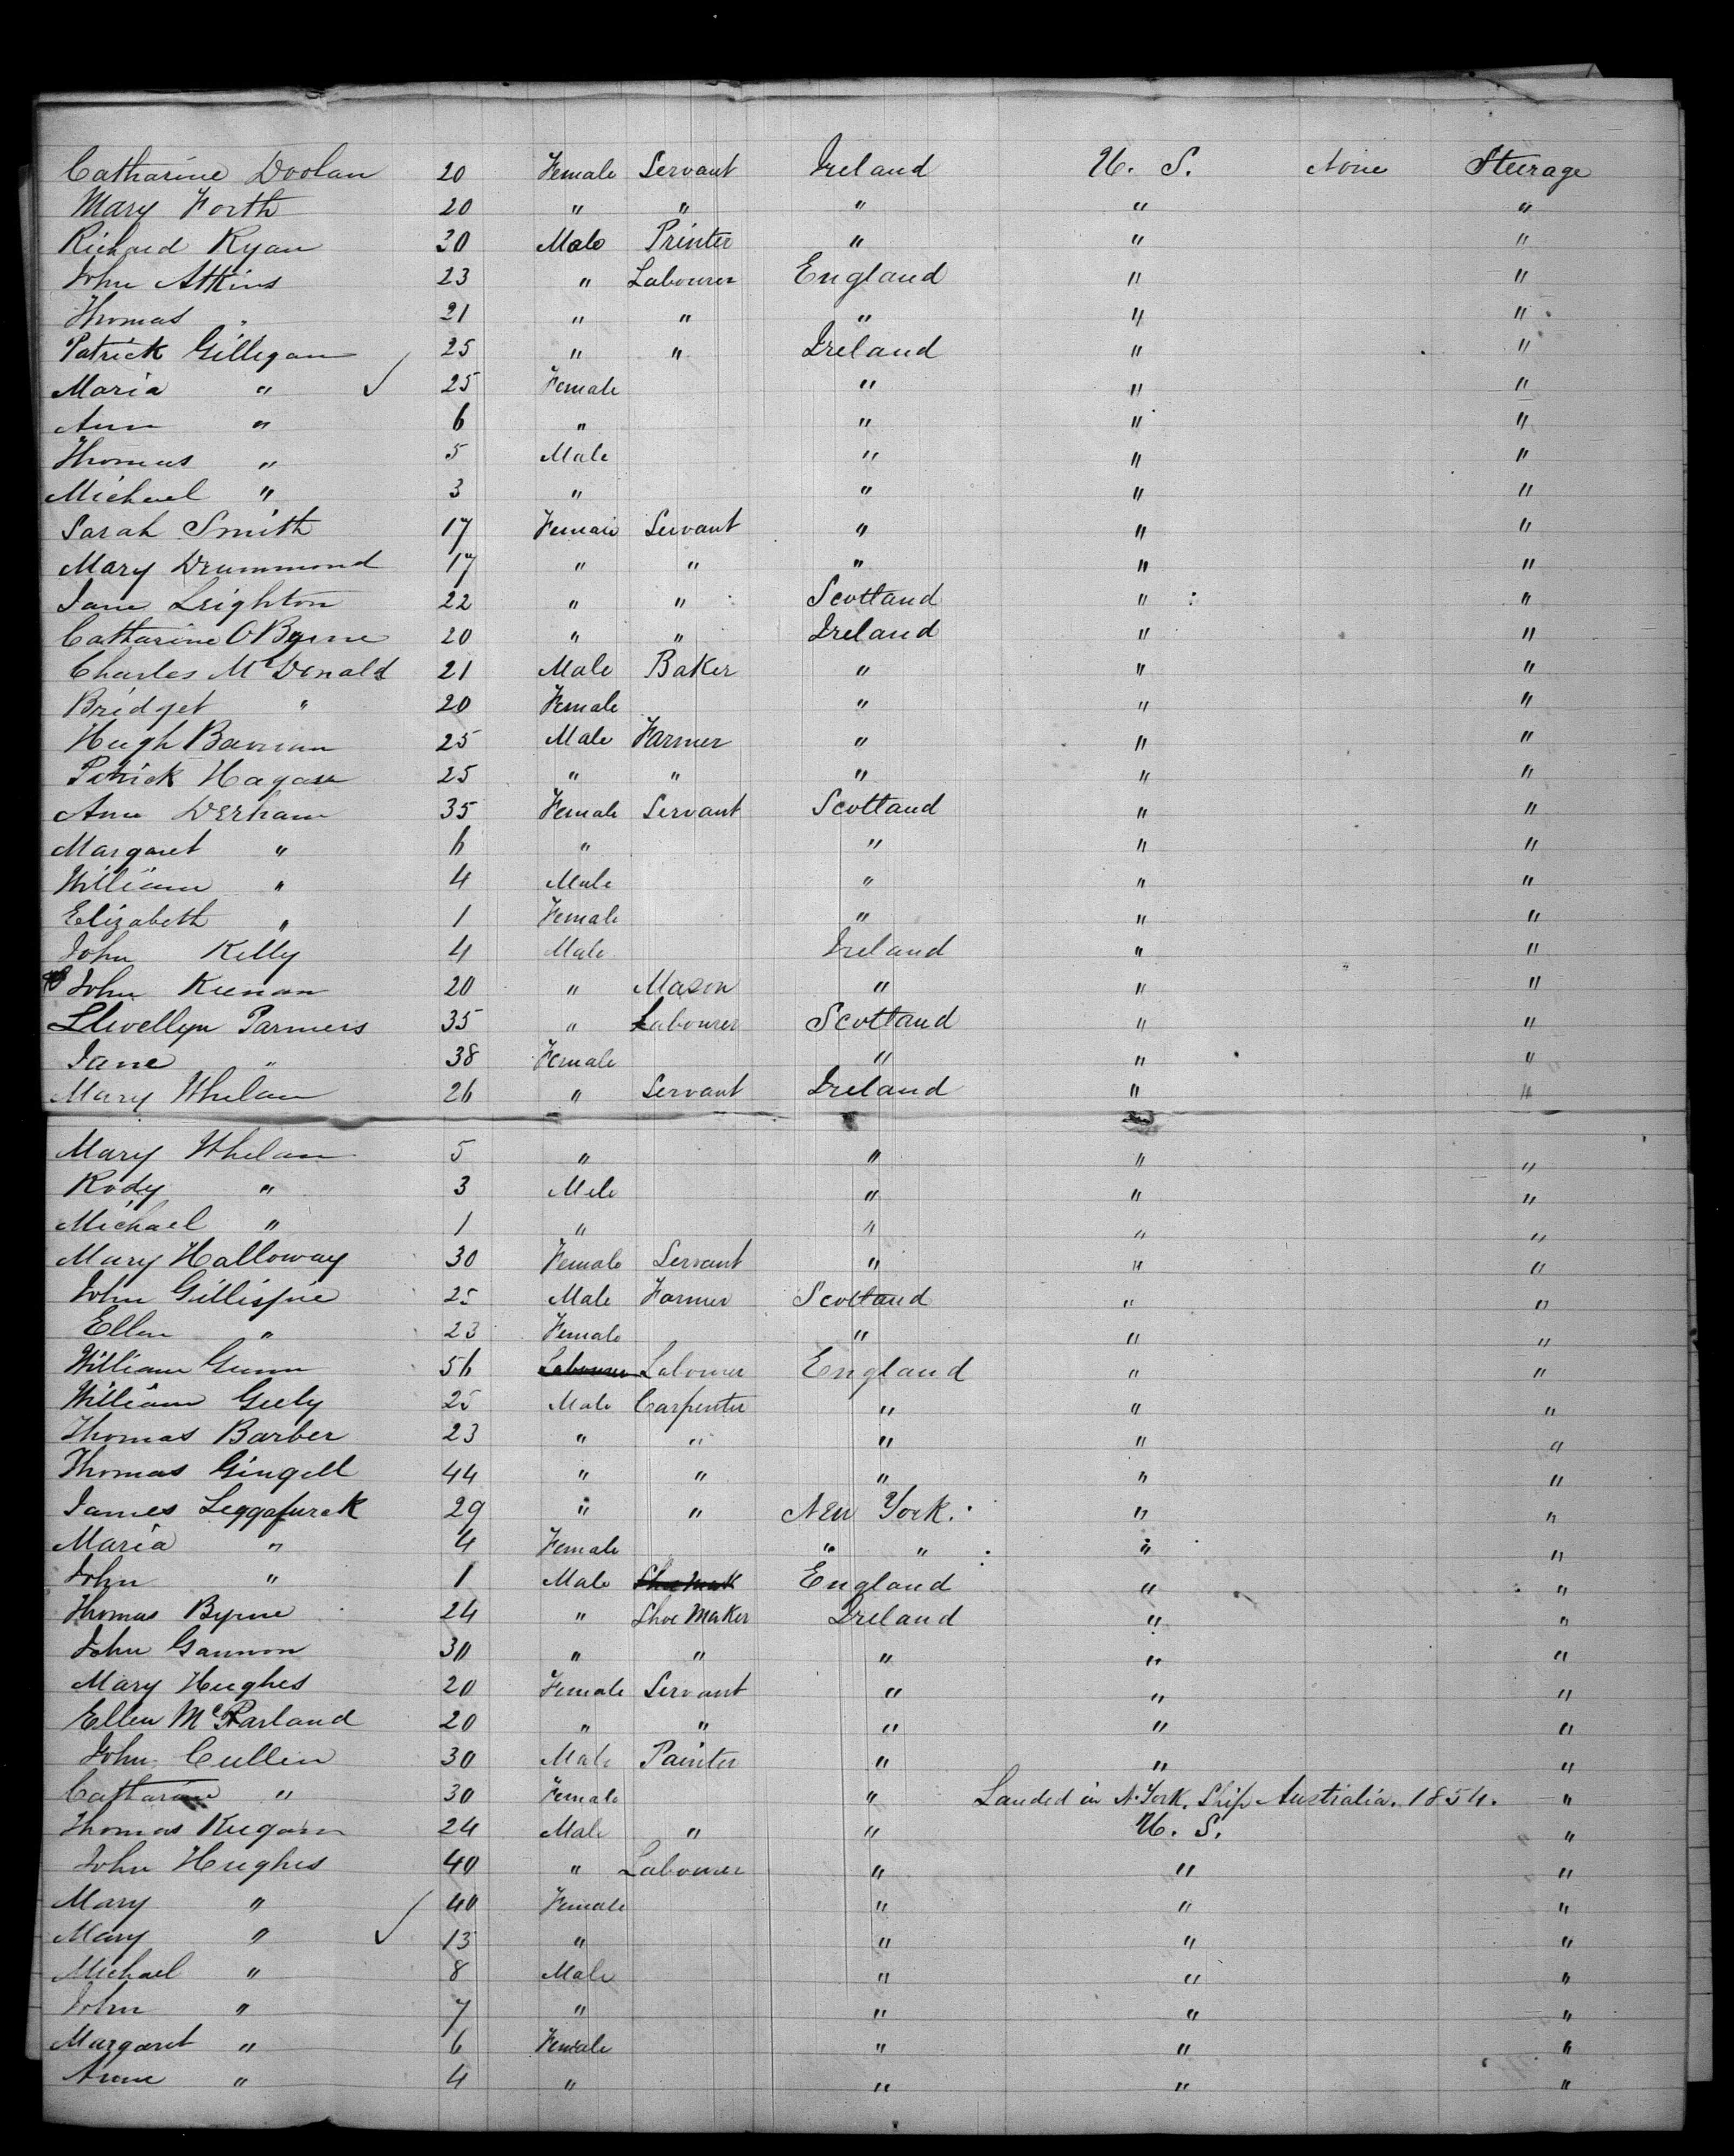 Catharine Doolan 20 Female Servant Ireland U. S. None Steerage
Mary Forth 20 " " " " "
Richard Ryan 30 Male Printer " " "
John Atkins 23 " Labourer England " "
Thomas " 21 " " " " "
Patrick Gilligan 25 " " Ireland " "
Maria " ✓ 25 Female " " "
Ann " 6 " " " "
Thomas " 5 Male " " "
Michael " 3 " " " "
Sarah Smith 17 Female Servant " " "
Mary Drummond 17 " " " " "
Jane Leighton 22 " " Scotland " "
Catharine O'Byrne 20 " " Ireland " "
Charles McDonald 21 Male Baker " " "
Bridget " 20 Female " " "
Hugh 25 Male Farmer " " "
Patrick Hagan 25 " " " " "
Ann Derham 35 Female Servant Scotland " "
Margaret " 6 " " " "
William " 4 Male " " "
Elizabeth " 1 Female " " "
John Kelly 4 Male Ireland " "
John Keenan 20 " Mason " " "
Llewellyn Parmers 35 " Labourer Scotland " "
Jane " 38 Female " " "
Mary Whelan 26 " Servant Ireland " "
Mary Whelan 5 " " " "
Rody " 3 Male " " "
Michael " 1 " " " "
Mary Halloway 30 Female Servant " " "
John Gillispie 25 Male Farmer Scotland " "
Ellen " 23 Female " " "
William Gunn 56 Labourer Labourer England " "
William Geely 25 Male Carpenter " " "
Thomas Barber 23 " " " " "
Thomas Gingell 44 " " " " "
James 29 " " New York. " "
Maria " 4 Female " " " "
John " 1 Male Shoe Mak England " "
Thomas Byrne 24 " Shoe Maker Ireland " "
John Gannon 30 " " " " "
Mary Hughes 20 Female Servant " " "
Ellen McParland 20 " " " " "
John Cullen 30 Male Painter " " "
Catharine " 30 Female " Landed in N. York. Ship Australia. 1854. "
Thomas Keegan 24 Male " " U. S. "
John Hughes 40 " Labourer " " "
Mary " 40 Female " " "
Mary " ✓ 13 " " " "
Michael " 8 Male " " "
John " 7 " " " "
Margaret " 6 Female " " "
Anne " 4 " " " "